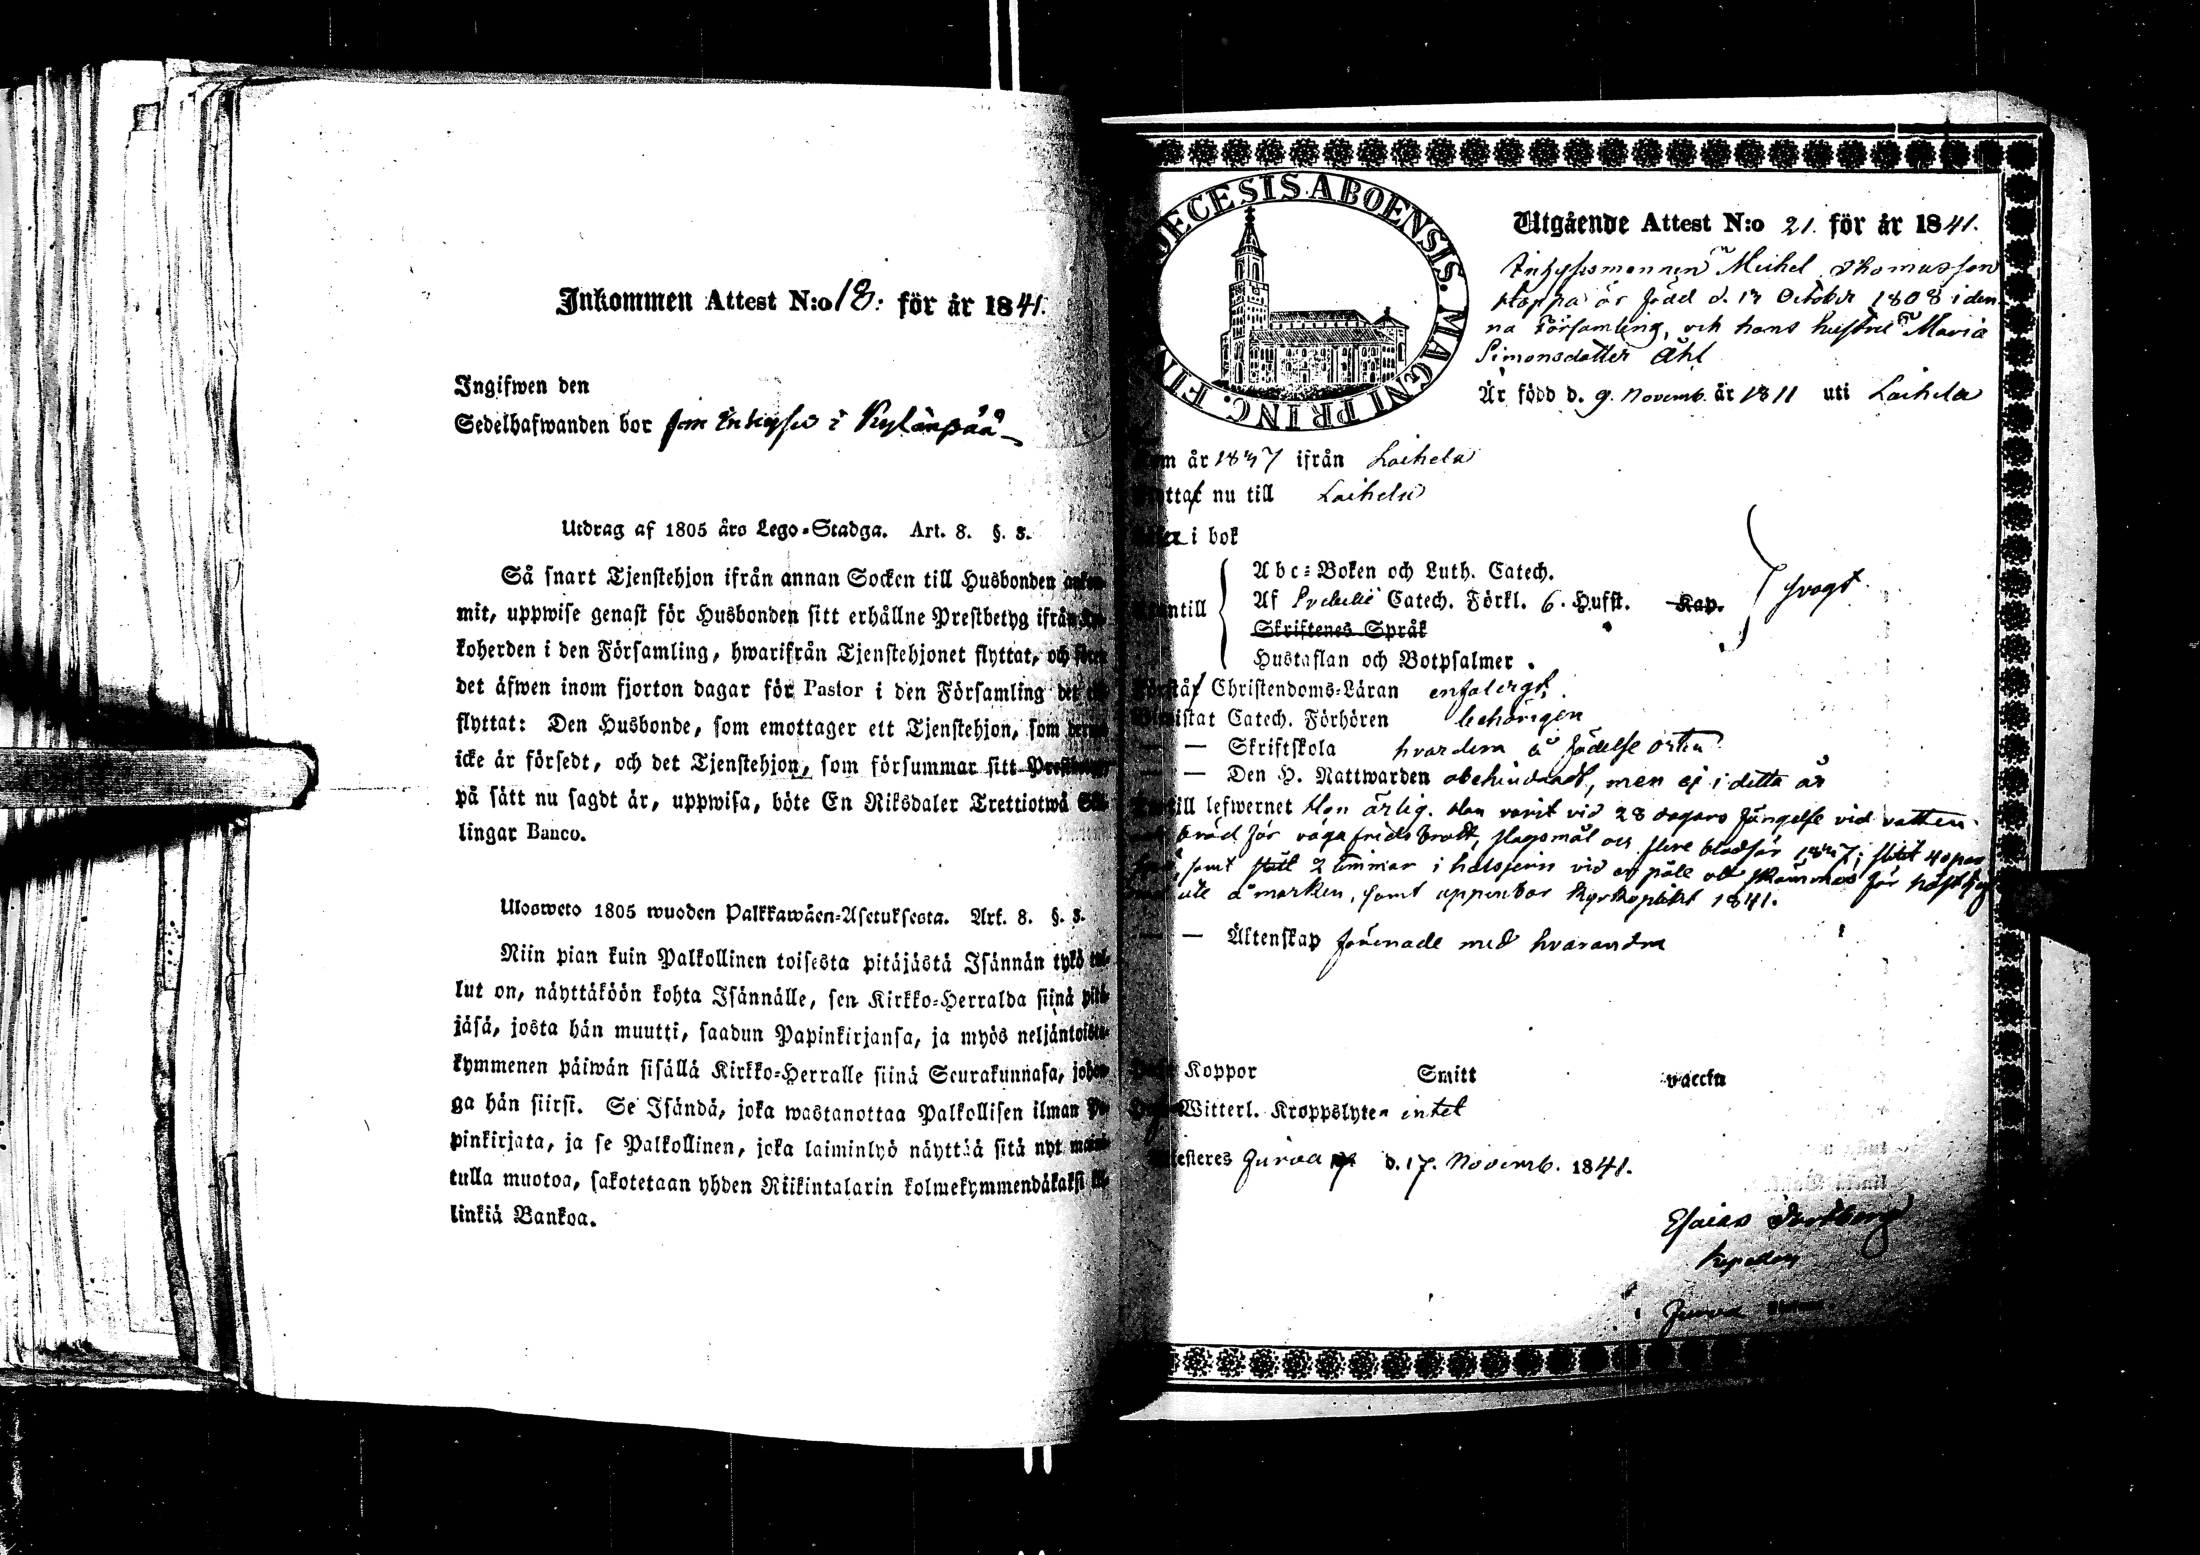 Inkommen Attest N:o 18: för år 1841.
Ingifwen den
Sedelhafwanden bor som Inhyses i Kylänpää
Utdrag af 1805 års Lego-Stadga. Art. 8. §. 3.
Så snart Tjenstehjon ifrån annan Socken till Husbonden
mit, uppwise genast för Husbonden sitt erhållne Prestbetyg ifrån
koherden i den Församling, hwarifrån Tjenstehjonet flyttat, och
det äfwen inom fjorton dagar för Pastor i den Församling det
flyttat: Den Husbonde, som emottager ett Tjenstehjon, som
icke är försedt, och det Tjenstehjon, som försummar sitt
på sätt nu sagdt är, uppwisa, böte En Riksdaler Trettiotwå
lingar Banco.
Ulosweto 1805 wuoden Palkkawäen-Asetuksesta. Art. 8. §. 3.
Niin pian kuin Palkollinen toisesta pitäjästä Isännän tykö tul-
lut on, näyttäköön kohta Isännälle, sen Kirkko-Herralda siinä pitä-
jäsä, josta hän muutti, saadun Papinkirjansa, ja myös neljäntoista-
kymmenen päiwän sisällä Kirkko-Herralle siinä Seurakunnasa, johon-
ga hän siirsi. Se Isändä, joka wastanottaa Palkollisen ilman Pa-
pinkirjata, ja se Palkollinen, joka laiminlyö näyttää sitä nyt
tulla muotoa, sakotetaan yhden Riikintalarin kolmekymmendäkaksi
linkiä Bankoa.
DECESIS ABOENSIS. MAGNI PRINC. FIN
Utgående Attest N:o 21. för år 1841.
Inhysesmannen Michel Thomasson
Koppa är född d. 13 October 1808 i den-
na Församling, och hans hustru Maria
Simonsdotter Åhl
Är född d. 9. Novemb. år 1811 uti Laihela
år 1837 ifrån Laihela
nu till Laihela
i bok
Abc-Boken och Luth. Catech.
Af Catech. Förkl. 6. Hufst. Kap. svagt
Skriftenes Språk
Hustaflan och Botpsalmer.
Christendoms-Läran enfaldigt.
Catech. Förhören behörigen
— — Skriftskola hvardera å födelse orten
— — Den H. Nattwarden obehindradt, men ej i detta år
till lefwernet Hon ärlig. Han varit vid 28 dagars fängelse vid vatten
bröd för slagsmål och flere blodsår 1837;
samt 2 timmar i halsjern vid en påle
marken, samt uppenbar kyrkoplikt 1841.
— — Äktenskap förenade med hvarandra
Koppor Smitt vaccin
Witterl. Kroppslyten intet
Jurva d. 17. Novemb. 1841.
Esaias
Kapellan
Jurva